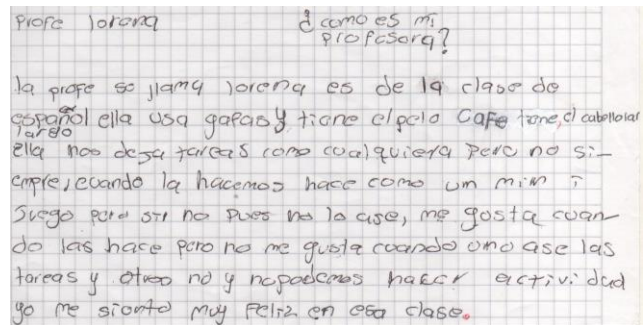 Profe lorena ¿como es mi
profesora?
la profe se llama lorena es de la clase de
español ella usa gafas y tiene el pelo cafe tiene, el cabello lar
largo
ella nos deja tareas como cualquiera pero no si-
empre, cuando la hacemos hace como un mini
juego pero si no pues no lo ase, me gusta cuan-
do las hace pero no me gusta cuando uno ase las
tareas y otro no y no podemos hacer actividad
yo me siento muy feliz en esa clase.